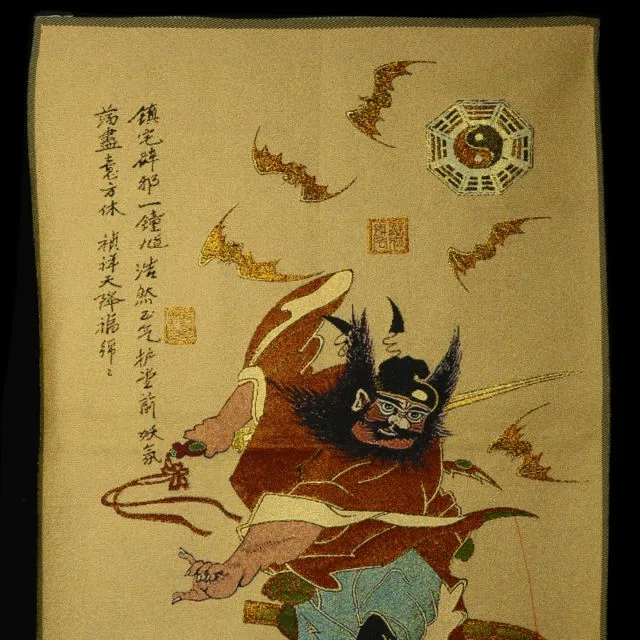 鎮宅辟邪一鐘馗浩然正气护堂前妖氛
蕩盡意方休 禎祥天降福綿〻